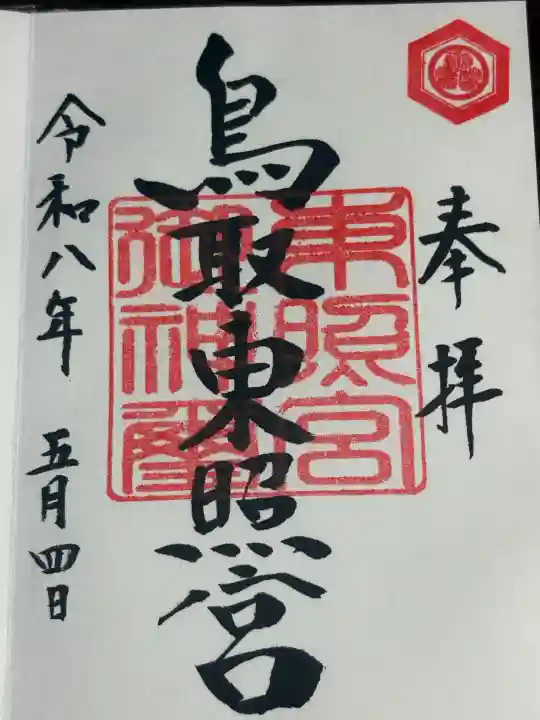 奉拝
鳥取東照宮
東照宮
御神璽
令和八年 五月四日